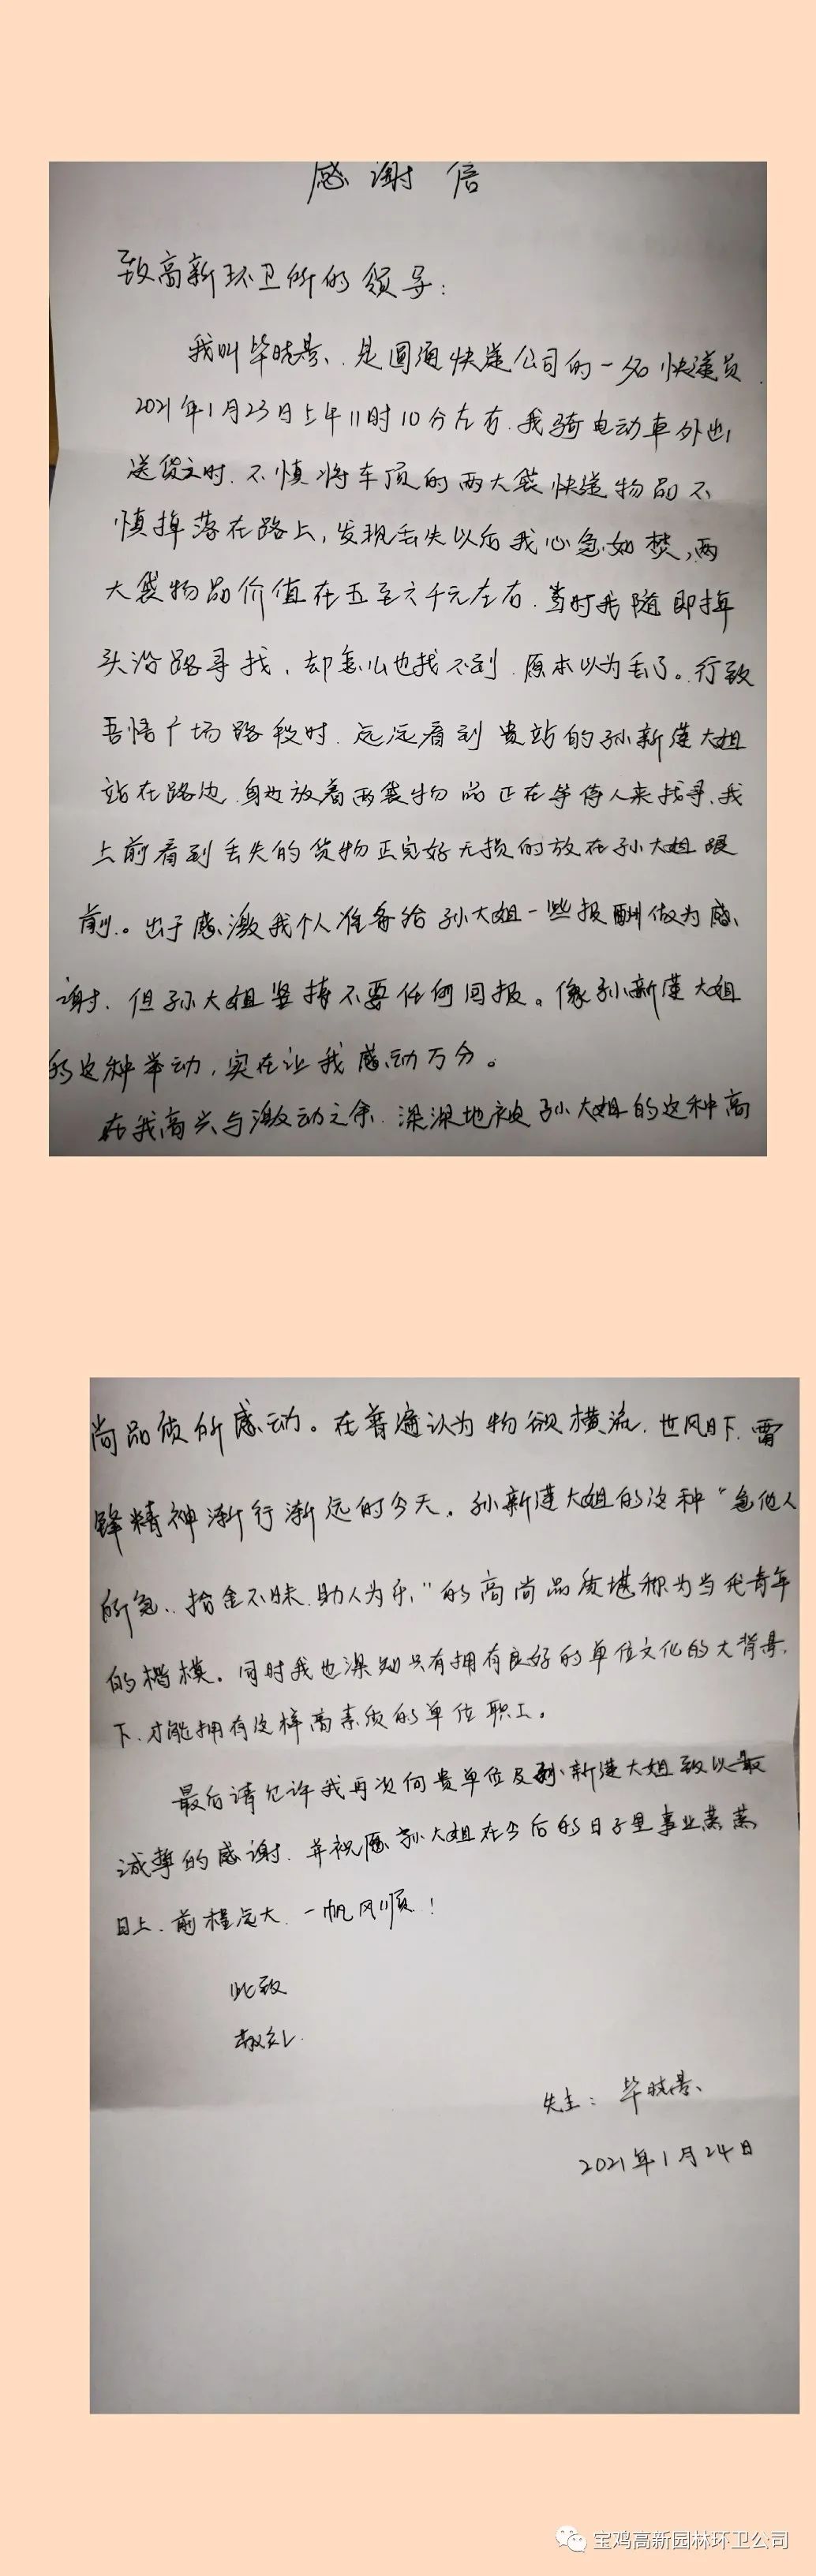 感谢信
致高新环卫所的领导：
我叫毕晓景、是圆通快递公司的一名快递员
2021年1月23日上午11时10分左右.我骑电动车外出
送货之时.不慎将车顶的两大袋快递物品不
慎掉落在路上,发现丢失以后我心急如焚,两
大袋物品价值在五至六千元左右.当时我随即掉
头沿路寻找,却怎么也找不到.原本以为丢了。行致
吾悟广场路段时.远远看到贵站的孙新莲大姐
站在路边.身边放着两袋物品正在等待人来找寻.我
上前看到丢失的货物正完好无损的放在孙大姐跟
前。出于感激我个人准备给孙大姐一些报酬做为感
谢.但孙大姐坚持不要任何回报。像孙新莲大姐
的这种举动,实在让我感动万分。
在我高兴与激动之余.深深地被孙大姐的这种高
尚品质所感动。在普遍认为物欲横流.世风日下.雷
锋精神渐行渐远的今天.孙新莲大姐的这种"急他人
所急、拾金不昧.助人为乐,"的高尚品质堪称为当代青年
的楷模。同时我也深知只有拥有良好的单位文化的大背景,
下.才能拥有这样高素质的单位职工。
最后请允许我再次向贵单位及孙新莲大姐致以最
诚挚的感谢.并祝愿孙大姐在今后的日子里事业蒸蒸
日上.前程远大.一帆风顺!
此致
敬礼.
失主：毕晓景、
2021年1月24日
宝鸡高新园林环卫公司